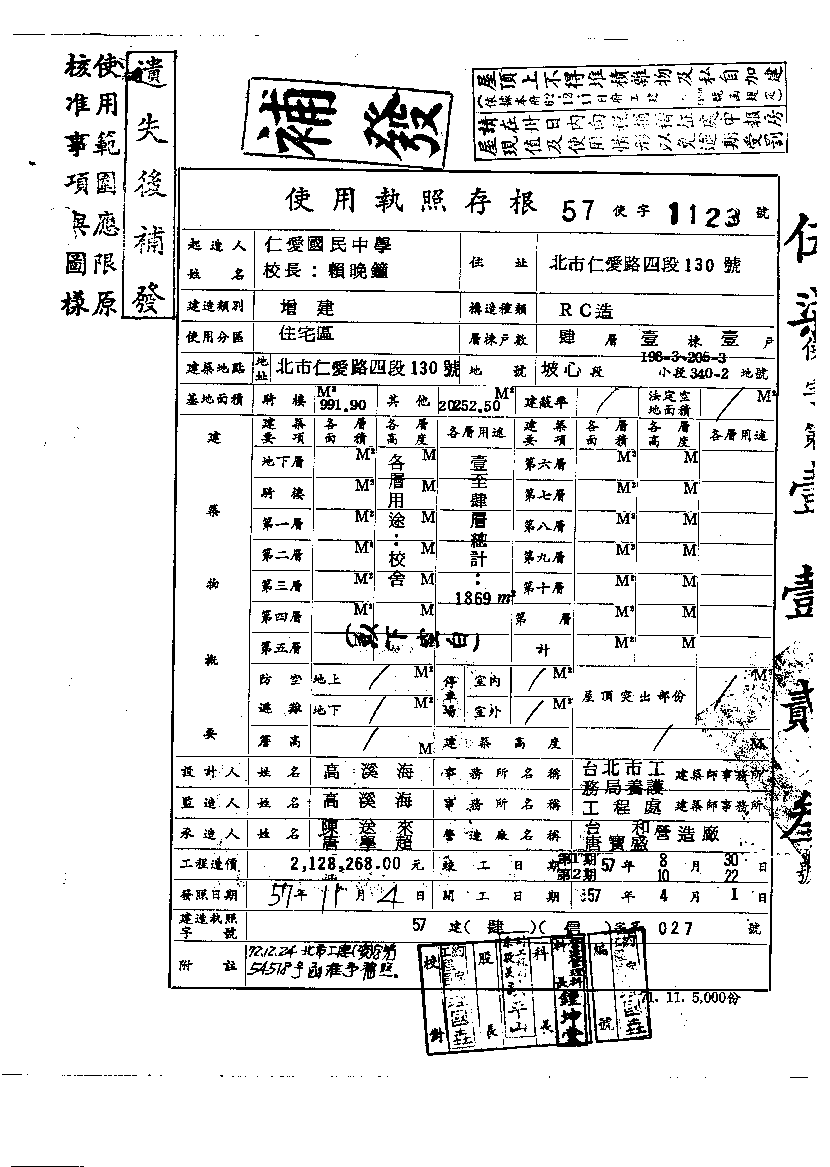 補發
屋頂上不得堆積雜物及私自加建
遺失後補發
使用範圍應限原
核准事項與圖樣
使用執照存根 57 使字 1123 號
起造人姓名 仁愛國民中學
校長：賴晚鐘
住址 北市仁愛路四段130號
建造類別 增建 構造種類 RC造
使用分區 住宅區 層棟戶數 肆層壹棟壹戶
建築地點 地址 北市仁愛路四段130號 地號 坡心段 198-3~205-3
小段340-2地號
基地面積 騎樓 991.90 M² 其他 20252.50 M² 建蔽率 / 法定空地面積 / M²
建築物概要
建築要項 各層面積 各層高度 各層用途 建築要項 各層面積 各層高度 各層用途
地下層 M² M 第六層 M² M
騎樓 M² M 第七層 M² M
第一層 M² M 第八層 M² M
第二層 M² M 第九層 M² M
第三層 M² M 第十層 M² M
第四層 M² M 第 層 M² M
第五層 M 計 M² M
各層用途：校舍
壹至肆層總計：
1869 m²
(以下空白)
防空避難 地上 / M² 停車場 室內 / M² 屋頂突出部份 / M²
地下 / M² 室外 / M²
簷高 / M 建築高度 / M
設計人 姓名 高溪海 事務所名稱 台北市工 建築師事務所
務局養護
監造人 姓名 高溪海 事務所名稱 工程處 建築師事務所
承造人 姓名 陳送來 營造廠名稱 台和營造廠
唐學超 唐寶盛
工程造價 2,128,268.00 元 竣工日期 第1期 57年 8月 30日
第2期 10 22
發照日期 57年11月4日 開工日期 57年4月1日
建造執照字號 57 建(肆)(信)字第 027 號
附註 72.12.24 北市工建(安)字第
54578号函准予補照。
校對 股長 科長 編號
鍾坤堂
71. 11. 5,000份
伍柒使字第壹壹貳叁